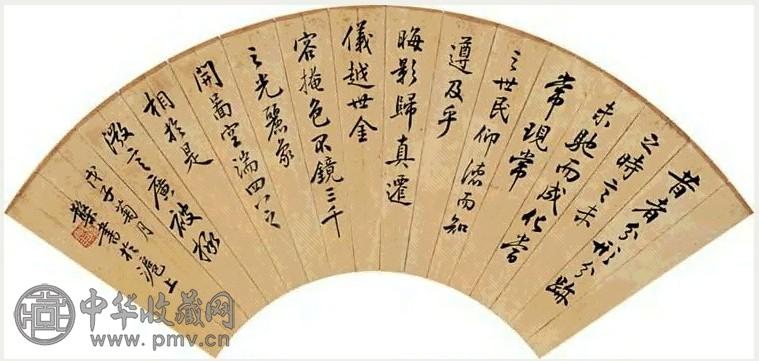 昔者分形分跡
之時言未
未馳而成化當
常現常
之世民仰德而知
遵及乎
晦影歸真遷
儀越世金
容掩色不鏡三千
之光麗象
開圖空端四八之
相於是
微言廣被拯
戊子菊月
書於滬上
中华收藏网
www.pmv.cn